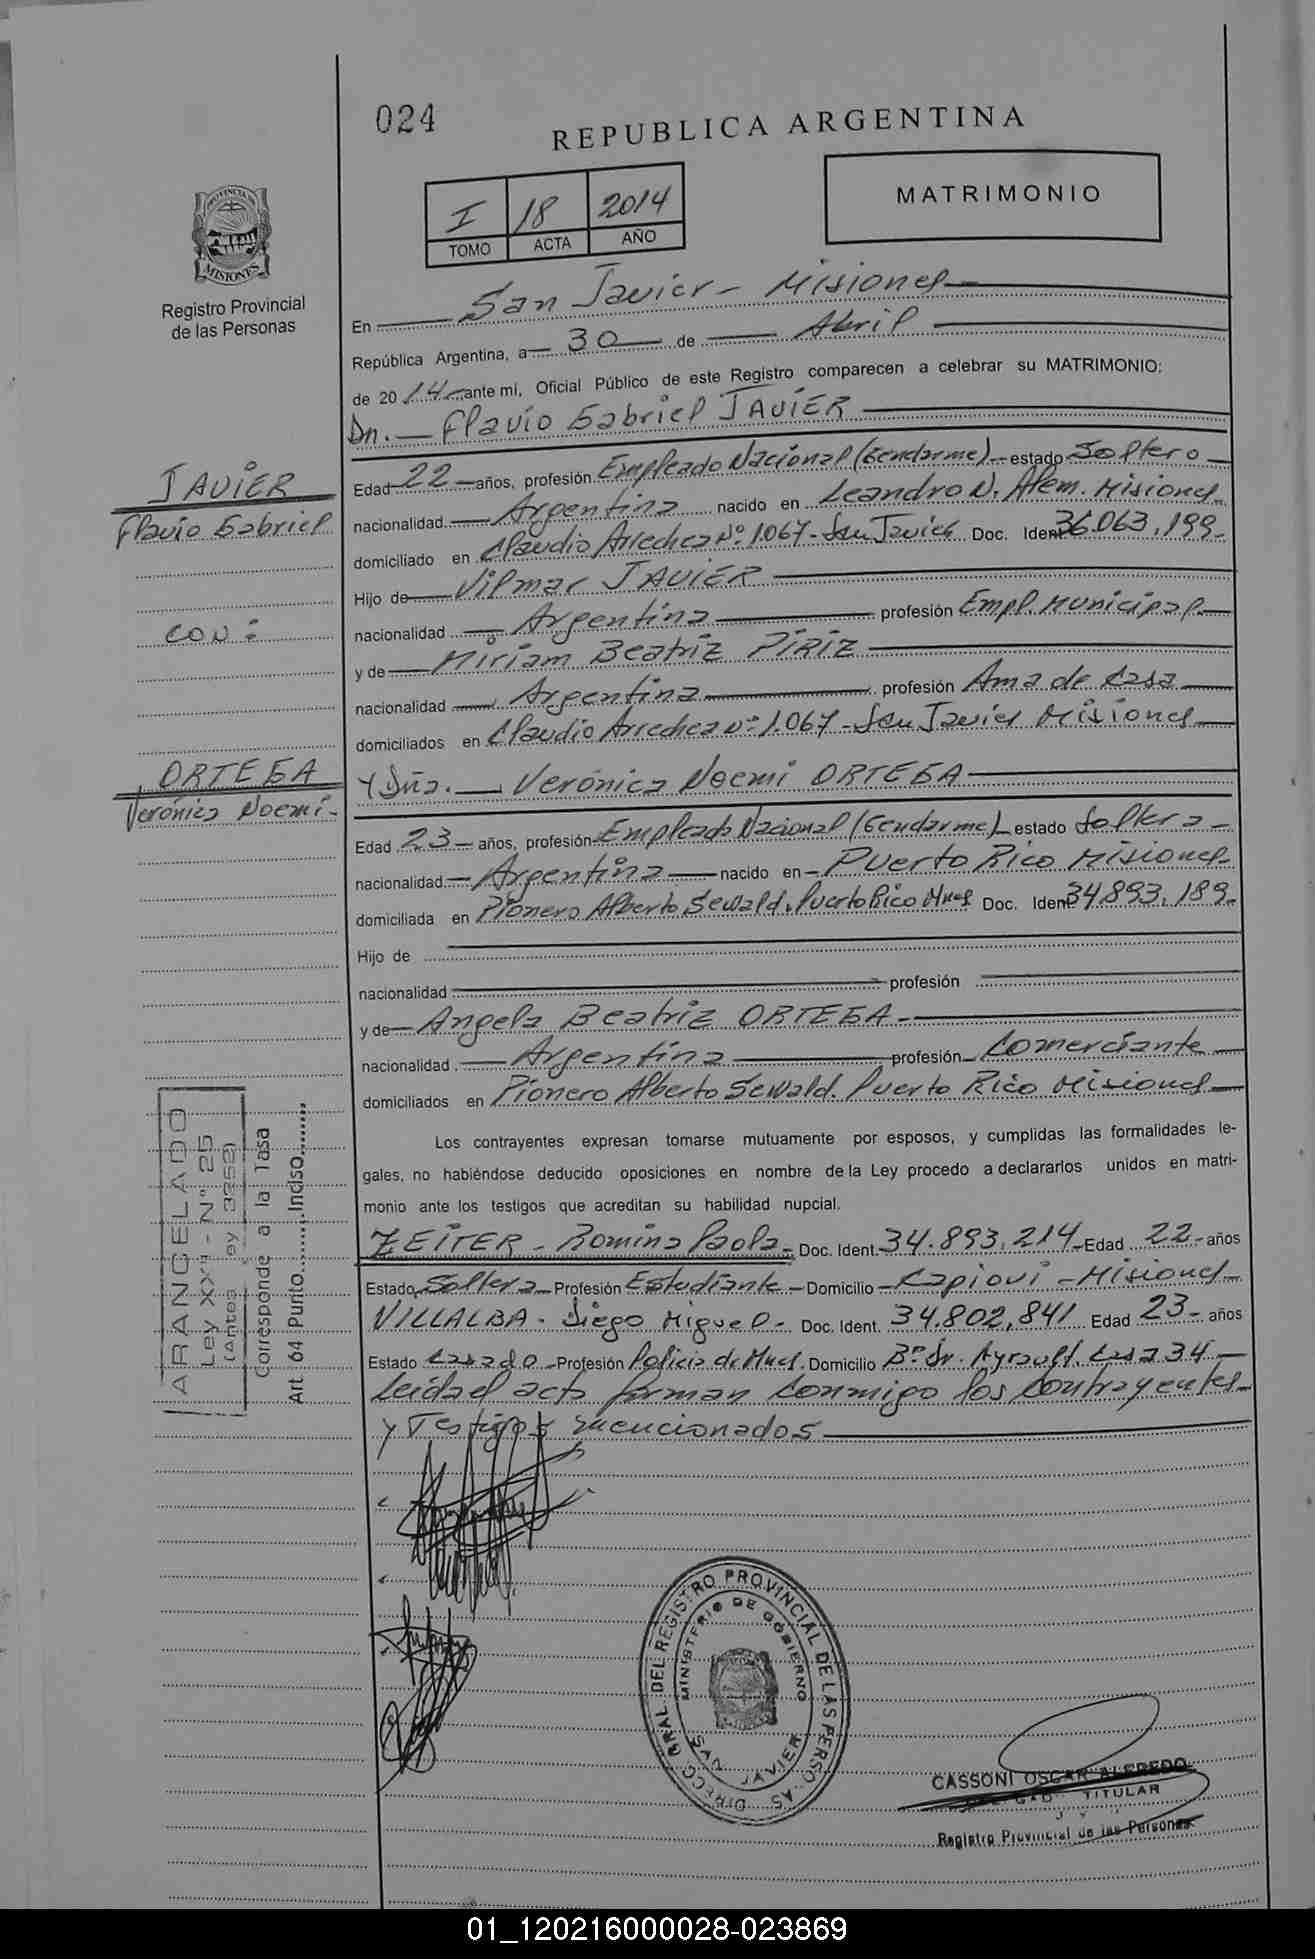 024
REPUBLICA ARGENTINA
I 18 2014
TOMO ACTA AÑO
MATRIMONIO
PROVINCIA DE
MISIONES
Registro Provincial
de las Personas
En San Javier - Misiones
República Argentina, a 30 de Abril
de 2014 ante mi, Oficial Público de este Registro comparecen a celebrar su MATRIMONIO:
Dn. Flavio Gabriel JAVIER
JAVIER
Flavio Gabriel
CON:
ORTEGA
Verónica Noemi-
Edad 22 años, profesión Empleado Nacional (Gendarme) estado Soltero
nacionalidad Argentina nacido en Leandro N. Alem. Misiones
domiciliado en Claudio Arrechea Nº 1.067 - San Javier Doc. Ident 36.063.199-
Hijo de Vilmar JAVIER
nacionalidad Argentina profesión Empl. Municipal
y de Miriam Beatriz PIRIZ
nacionalidad Argentina profesión Ama de Casa
domiciliados en Claudio Arrechea nº 1.067 - San Javier Misiones
Y Dña. Verónica Noemi ORTEGA
Edad 23 años, profesión Empleada Nacional (Gendarme) estado Soltera
nacionalidad Argentina nacido en Puerto Rico Misiones
domiciliada en Pionero Alberto Sewald. Puerto Rico Mnes Doc. Ident 34.893.189-
Hijo de
nacionalidad profesión
y de Angela Beatriz ORTEGA
nacionalidad Argentina profesión Comerciante
domiciliados en Pionero Alberto Sewald. Puerto Rico Misiones
Los contrayentes expresan tomarse mutuamente por esposos, y cumplidas las formalidades le-
gales, no habiéndose deducido oposiciones en nombre de la Ley procedo a declararlos unidos en matri-
monio ante los testigos que acreditan su habilidad nupcial.
ZEITER - Romina Paola - Doc. Ident. 34.893.214 Edad 22 años
Estado Soltera Profesión Estudiante Domicilio Capiovi - Misiones
VILLALBA - Diego Miguel - Doc. Ident. 34.802.841 Edad 23 años
Estado Casado Profesión Policia de Mnes. Domicilio Bº Dr. Ayrault. Casa 34
Leida el acta firman conmigo los contrayentes
y Testigos mencionados
ARANCELADO
Ley XXII - Nº 25
(Antes Ley 3252)
Corresponde a la Tasa
Art. 64 Punto........Inciso........
DIRECC. GRAL. DEL REGISTRO PROVINCIAL DE LAS PERSONAS
MINISTERIO DE GOBIERNO
SAN JAVIER
CASSONI OSCAR ALFREDO
TITULAR
Registro Provincial de las Personas
01_120216000028-023869